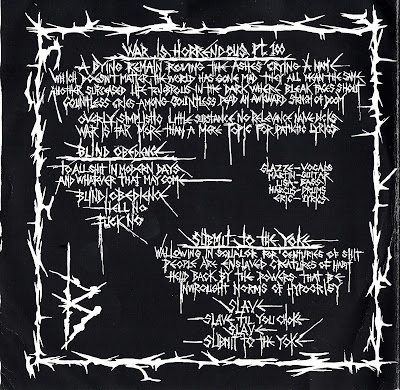 WAR IS HORRENDOUS PT. 100
A DYING REMAIN ROVING THE ASHES CRYING A NAME
WHICH DOESN'T MATTER THE WORLD HAS GONE MAD THEY ALL MEAN THE SAME
ANOTHER SURCEASED LIFE TENEBROUS IN THE DARK WHERE BLEAK FACES SHOUT
COUNTLESS CRIES AMONG COUNTLESS DEAD AN AWKWARD STENCH OF DOOM
OVERLY SIMPLISTIC LITTLE SUBSTANCE NO RELEVANCE NAIVE DICKS
WAR IS FAR MORE THAN A MERE TOPIC FOR PATHETIC LYRICS
BLIND OBEDIENCE
TO ALL SHIT IN MODERN DAYS
AND WHATEVER THAT MAY COME
BLIND OBEDIENCE
HELL NO
FUCK NO
VOCALS
GUITAR
BASS
MARCUS DRUMS
ERIC LYRICS
SUBMIT TO THE YOKE
WALLOWING IN SQUALOR FOR CENTURIES OF SHIT
PEOPLE ARE ENSLAVED CREATURES OF HABIT
HELD BACK BY THE POWERS THAT BE
INWROUGHT NORMS OF HYPOCRISY
SLAVE
SLAVE TIL YOU CHOKE
SLAVE
SUBMIT TO THE YOKE